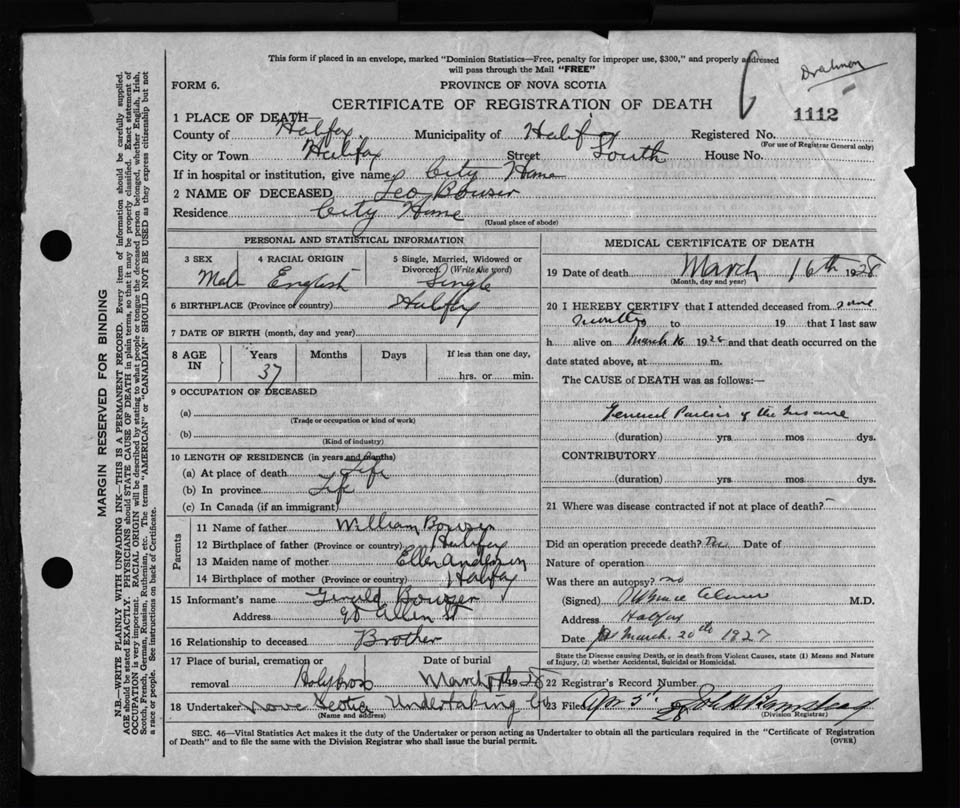 This form if placed in an envelope, marked "Dominion Statistics—Free, penalty for improper use, $300," and properly addressed
will pass through the Mail "FREE"
FORM 6.
PROVINCE OF NOVA SCOTIA
CERTIFICATE OF REGISTRATION OF DEATH
1112
1 PLACE OF DEATH—
County of Halifax Municipality of Halifax Registered No.
(For use of Registrar General only)
City or Town Halifax Street South House No.
If in hospital or institution, give name City Home
2 NAME OF DECEASED Leo Bouser
Residence City Home
(Usual place of abode)
PERSONAL AND STATISTICAL INFORMATION
3 SEX 4 RACIAL ORIGIN 5 Single, Married, Widowed or
Divorced. (Write the word)
Male English Single
6 BIRTHPLACE (Province or country) Halifax
7 DATE OF BIRTH (month, day and year)
8 AGE IN Years Months Days If less than one day,
37 hrs. or min.
9 OCCUPATION OF DECEASED
(a)
(Trade or occupation or kind of work)
(b)
(Kind of industry)
10 LENGTH OF RESIDENCE (in years and months)
(a) At place of death Life
(b) In province Life
(c) In Canada (if an immigrant)
Parents
11 Name of father William Bouser
12 Birthplace of father (Province or country) Halifax
13 Maiden name of mother Ellen Anderson
14 Birthplace of mother (Province or country) Halifax
15 Informant's name Gerald Bouser
Address 90 Allen St
16 Relationship to deceased Brother
17 Place of burial, cremation or removal Holy Cross Date of burial March
18 Undertaker Nova Scotia Undertaking Co
(Name and address)
MEDICAL CERTIFICATE OF DEATH
19 Date of death March 16th 1928
(Month, day and year)
20 I HEREBY CERTIFY that I attended deceased from some
months to 19 that I last saw
h alive on March 16 192 and that death occurred on the
date stated above, at m.
The CAUSE of DEATH was as follows:—
General Paresis of the Insane
(duration) yrs mos dys.
CONTRIBUTORY
(duration) yrs mos dys.
21 Where was disease contracted if not at place of death?
Did an operation precede death? Date of
Nature of operation
Was there an autopsy? no
(Signed) M.D.
Address Halifax
Date March 20th 1927
State the Disease causing Death, or in death from Violent Causes, state (1) Means and Nature
of Injury, (2) whether Accidental, Suicidal or Homicidal.
22 Registrar's Record Number
23 Filed Apr 3 28
(Division Registrar)
SEC. 46—Vital Statistics Act makes it the duty of the Undertaker or person acting as Undertaker to obtain all the particulars required in the "Certificate of Registration
of Death" and to file the same with the Division Registrar who shall issue the burial permit.
(OVER)
MARGIN RESERVED FOR BINDING
N.B.—WRITE PLAINLY WITH UNFADING INK—THIS IS A PERMANENT RECORD. Every item of information should be carefully supplied.
AGE should be stated EXACTLY. PHYSICIANS should STATE CAUSE OF DEATH in plain terms, so that it may be properly classified. Exact statement of
OCCUPATION is very important. RACIAL ORIGIN will be described by stating to what people or tongue the deceased person belonged, whether English, Irish,
Scotch, French, German, Russian, Ruthenian, etc. The terms "AMERICAN" or "CANADIAN" SHOULD NOT BE USED as they express citizenship but not
a race or people. See instructions on back of Certificate.